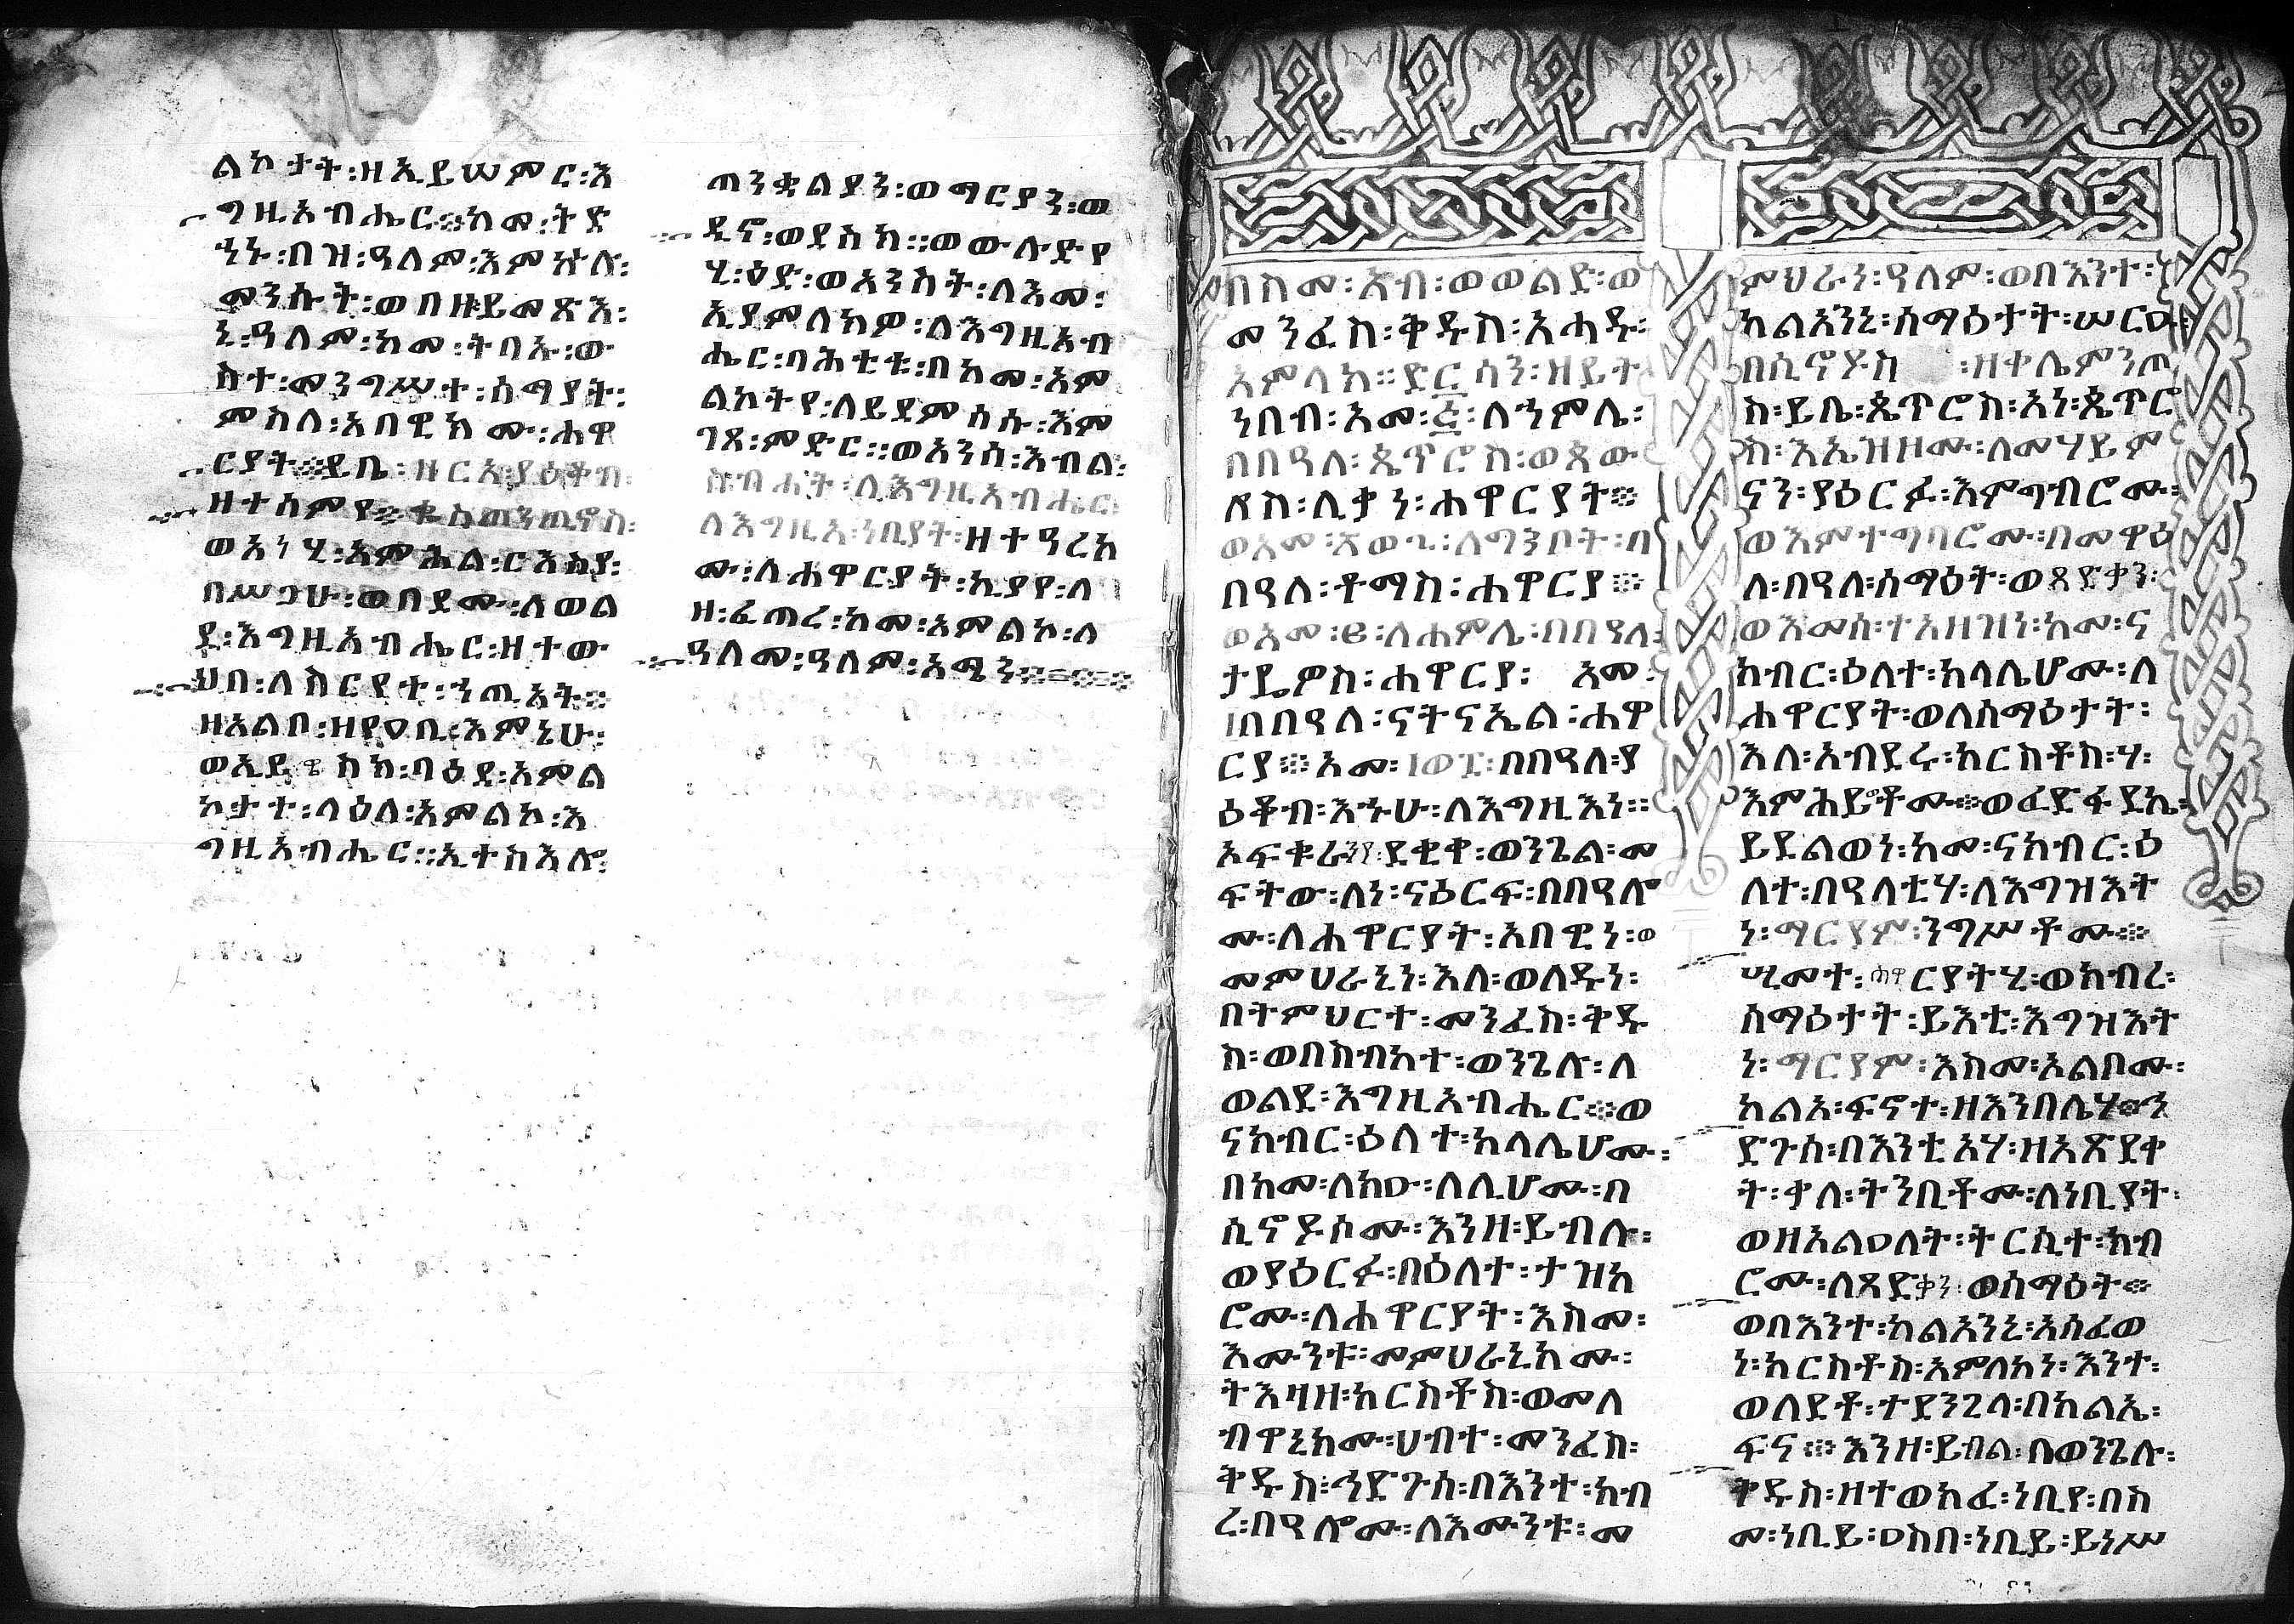 ልኮታት፡ዘኢይሠምር፡እ
ግዚአብሔር፨ከመ፡ትድ
ኅኑ፡በዝ፡ዓለም፡እምኵሉ፡
መንሱት፡ወበዘይመጽእ፡
ኒ፡ዓለም፡ከመ፡ትባኡ፡ው
ስተ፡መንግሥተ፡ሰማያት፡
ምስለ፡አበዊክሙ፡ሐዋ
ርያት፨ይቤ፡ዘርአ፡ያዕቆብ፡
ዘተሰምየ፨ቈስጠንጢኖስ፡
ወአነሂ፡አምሕል፡ርእስየ፡
በሥጋሁ፡ወበደሙ፡ለወል
ደ፡እግዚአብሔር፡ዘተው
ህበ፡ለስርየተ፡ኀጢአት፨
ዘአልቦ፡ዘየዐቢ፡እምኔሁ፡
ወኢይዌስክ፡ባዕደ፡አምል
ኮታተ፡ላዕለ፡አምልኮ፡እ
ግዚአብሔር፡፡ኢተስእሎ፡
ጠንቋልያን፡ወማርያን፡ወ
ዲኖ፡ወደስክ፡፡ወውሉድየ
ሂ፡ዕድ፡ወአንስት፡ለእመ፡
ኢያምለክዎ፡ለእግዚአብ
ሔር፡ባሕቲቱ፡በከመ፡አም
ልኮትየ፡ለይደምሰሱ፡እም
ገጸ፡ምድር፡፡ወአንሰ፡እብል፡
ስብሐት፡ለእግዚአብሔር፡
ለእግዚአ፡ነቢያት፡ዘተዓረከ
ሙ፡ለሐዋርያት፡ኪያየ፡ለ
ዘ፡ፈጠረ፡ከመ፡አምልኮ፡ለ
ዓለመ፡ዓለም፡አሜን፨=፨=፨
በስመ፡አብ፡ወወልድ፡ወ
መንፈስ፡ቅዱስ፡አሐዱ፡
አምላክ፡፡ድርሳን፡ዘይት
ነበብ፡አመ፡፭፡ለኀምሌ፡
በበዓለ፡ጴጥሮስ፡ወጳው
ሎስ፡ሊቃነ፡ሐዋርያት፨
በዓለ፡ቶማስ፡ሐዋርያ፨
ወአመ፡፱፡ለሐምሌ፡በበዓለ፡
ታዴዎስ፡ሐዋርያ፡ አመ፡
፲በበዓለ፡ናትናኤል፡ሐዋ
ርያ፨አመ፡፲ወ፯፡በበዓለ፡ያ
ዕቆብ፡እኁሁ፡ለእግዚእነ፡፡
አፍቁራንየ፡ደቂቀ፡ወንጌል፡መ
ፍትው፡ለነ፡ናዕርፍ፡በበዓሎ
ሙ፡ለሐዋርያት፡አበዊነ፡ወ
መምህራኒነ፡እለ፡ወለዱነ፡
በትምህርተ፡መንፈስ፡ቅዱ
ስ፡ወበስብከተ፡ወንጌሉ፡ለ
ወልደ፡እግዚአብሔር፨ወ
ናከብር፡ዕለተ፡ከላሌሆሙ፡
በከመ፡ለከዉ፡ለሊሆሙ፡በ
ሲኖዶሶሙ፡እንዘ፡ይብሉ፡
ወያዕርፉ፡በዕለተ፡ታዝካ
ሮሙ፡ለሐዋርያት፡እስመ፡
እሙንቱ፡መምህራኒክሙ፡
ትእዛዘ፡ክርስቶስ፡ወመለ
ብዋኒክሙ፡ሀብተ፡መንፈስ፡
ቅዱስ፡ኅድጉሰ፡በእንተ፡ክብ
ረ፡በዓሎሙ፡ለእሙንቱ፡መ
ምህራነ፡ዓለም፡ወበእንተ፡
ካልአንኒ፡ሰማዕታት፡ሠርዑ፡
በሲኖዶስ ፡ዘቀሌምንጦ
ስ፡ይቤ፡ጴጥሮስ፡አነ፡ጴጥሮ
ስ፡እኤዝዞሙ፡ለመሃይም
ናን፡ያዕርፉ፡እምግብሮሙ፡
ወእምተግባሮሙ፡በመዋዕ
ለ፡በዓለ፡ሰማዕት፡ወጻድቃን፡
ወእመሰ፡ተአዘዝነ፡ከመ፡ና
ከብር፡ዕለተ፡ከላሌሆሙ፡ለ
ሐዋርያት፡ወለሰማዕታት፡
እለ፡አብደሩ፡ክርስቶስ፡ሃ፡
እምሕይዎቶሙ፨ወፈድፋደኬ፡
ይደልወነ፡ከመ፡ናክብር፡ዕ
ለተ፡በዓላቲሃ፡ለእግዝእት
ነ፡ማርያም፡ንግሥቶሙ፨
ሢመተ፡ሐዋርያትሂ፡ወክብረ፡
ሰማዕታት፡ይእቲ፡እግዝእት
ነ፡ማርያም፡እስመ፡አልቦሙ፡
ካልአ፡ፍኖተ፡ዘእንበሌሃ፨ኅ
ድጉሰ፡በእንቲአሃ፡ዘአጽደቀ
ት፡ቃለ፡ትንቢቶሙ፡ለነቢያት፡
ወዘአልዐለት፡ትርሲተ፡ክብ
ሮሙ፡ለጻድቃን፡ወሰማዕት፨
ወበእንተ፡ካልአንኒ፡አሰፈወ
ነ፡ክርስቶስ፡አምላክነ፡እንተ፡
ወለደቶ፡ተደንጊላ፡በክልኤ፡
ፍና፨እንዘ፡ይብል፡በወንጌሉ፡
ቅዱስ፡ዘተወክፈ፡ነቢየ፡በስ
መ፡ነቢይ፡ዐስበ፡ነቢይ፡ይነሥ